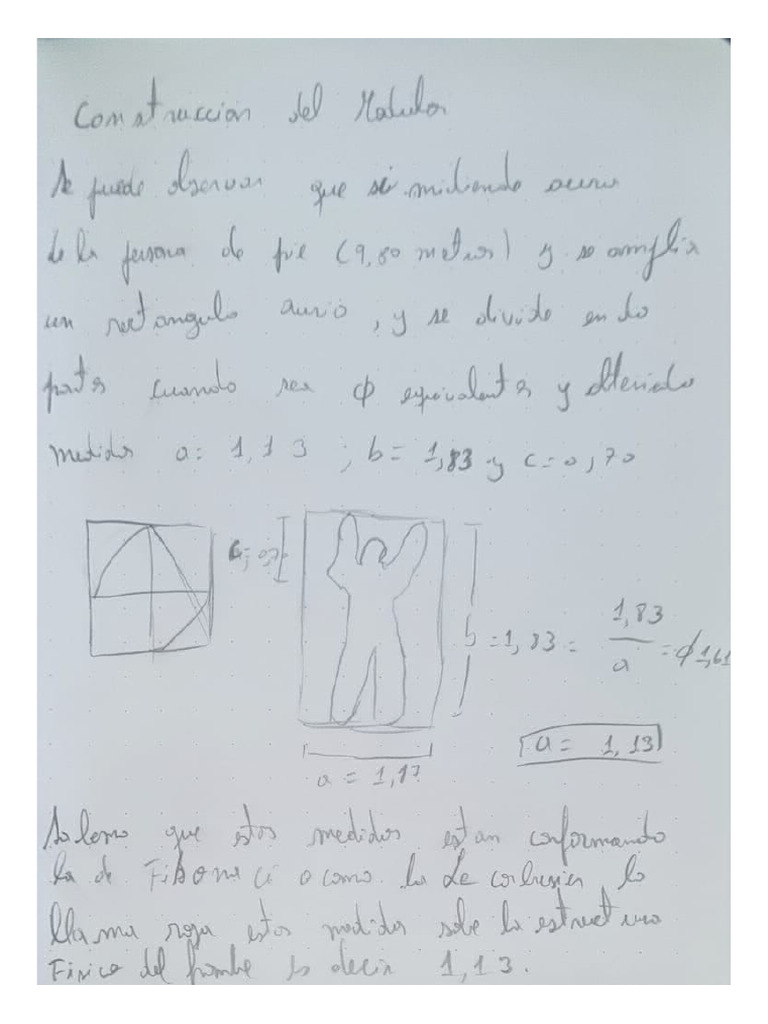 Construccion del Modulor
Se puede observar que si midiendo aureo
de la persona de pie (9,80 metros) y se amplia
un rectangulo aurio, y se divide en do
partes cuando sea ϕ equivalentes y obteniendo
medidas a= 1,13 ; b= 1,83 y c=0,70
b=1,83 = 1,83 / a = ϕ 1,61
a = 1,13
a = 1,17
que estos medidas estan conformando
la de Fibona ci o como la Le corbusier lo
llama roja estos medidas sobe la estructura
Fisico del hombre es decir 1,13.